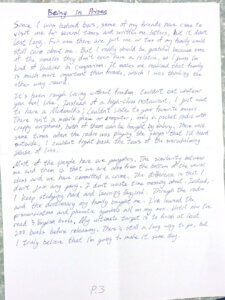 Being In Prison
Since I was locked here, some of my friends have come to
visit me for several times and written me letters, but it don't
last long. For now there are just one or two of my family could
still care about me. But I really should be grateful because one
of the inmates they don't even have a relative, so I feel
luckier in comparison. It makes me realized that family
is much more important than friends, which I was thinking the
other way round.
It's been rough living without freedom. Couldn't eat whatever
you feel like, instead of a high-class restaurant, I just want
to have a McDonald's, couldn't listen to your favorite music.
There isn't a movie player or computer, only a pocket radio with
crappy earphones, both of them can be bought by inmates. There were
some times when the radio was playing the songs that I'd heard
outside, I couldn't fight back the tears of the overwhelming
sense of loss.
Most of the people here are gangsters. The similarity between
me and them is that we are also from the bottom of the social
class and we have committed a crime. The difference is that I
don't join any gang. I don't waste time moaning about. Instead,
I keep studying hard and learning English. Through the radio
and the dictionary my family bought me. I've learned the
pronunciation and phonetic symbols all on my own. Until now I've
read English books, My ultimate target is to read at least
200 books before releasing. There's still a long way to go, but
I truly believe that I'm going to make it some day.
P.3